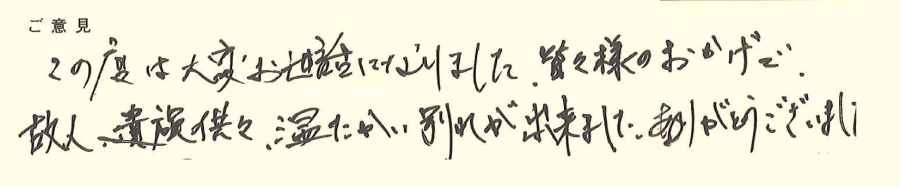 ご意見
この度は大変お世話になりました。皆々様のおかげで、
故人、貴族供々、温たかい別れが出来ました。ありがとうございまし